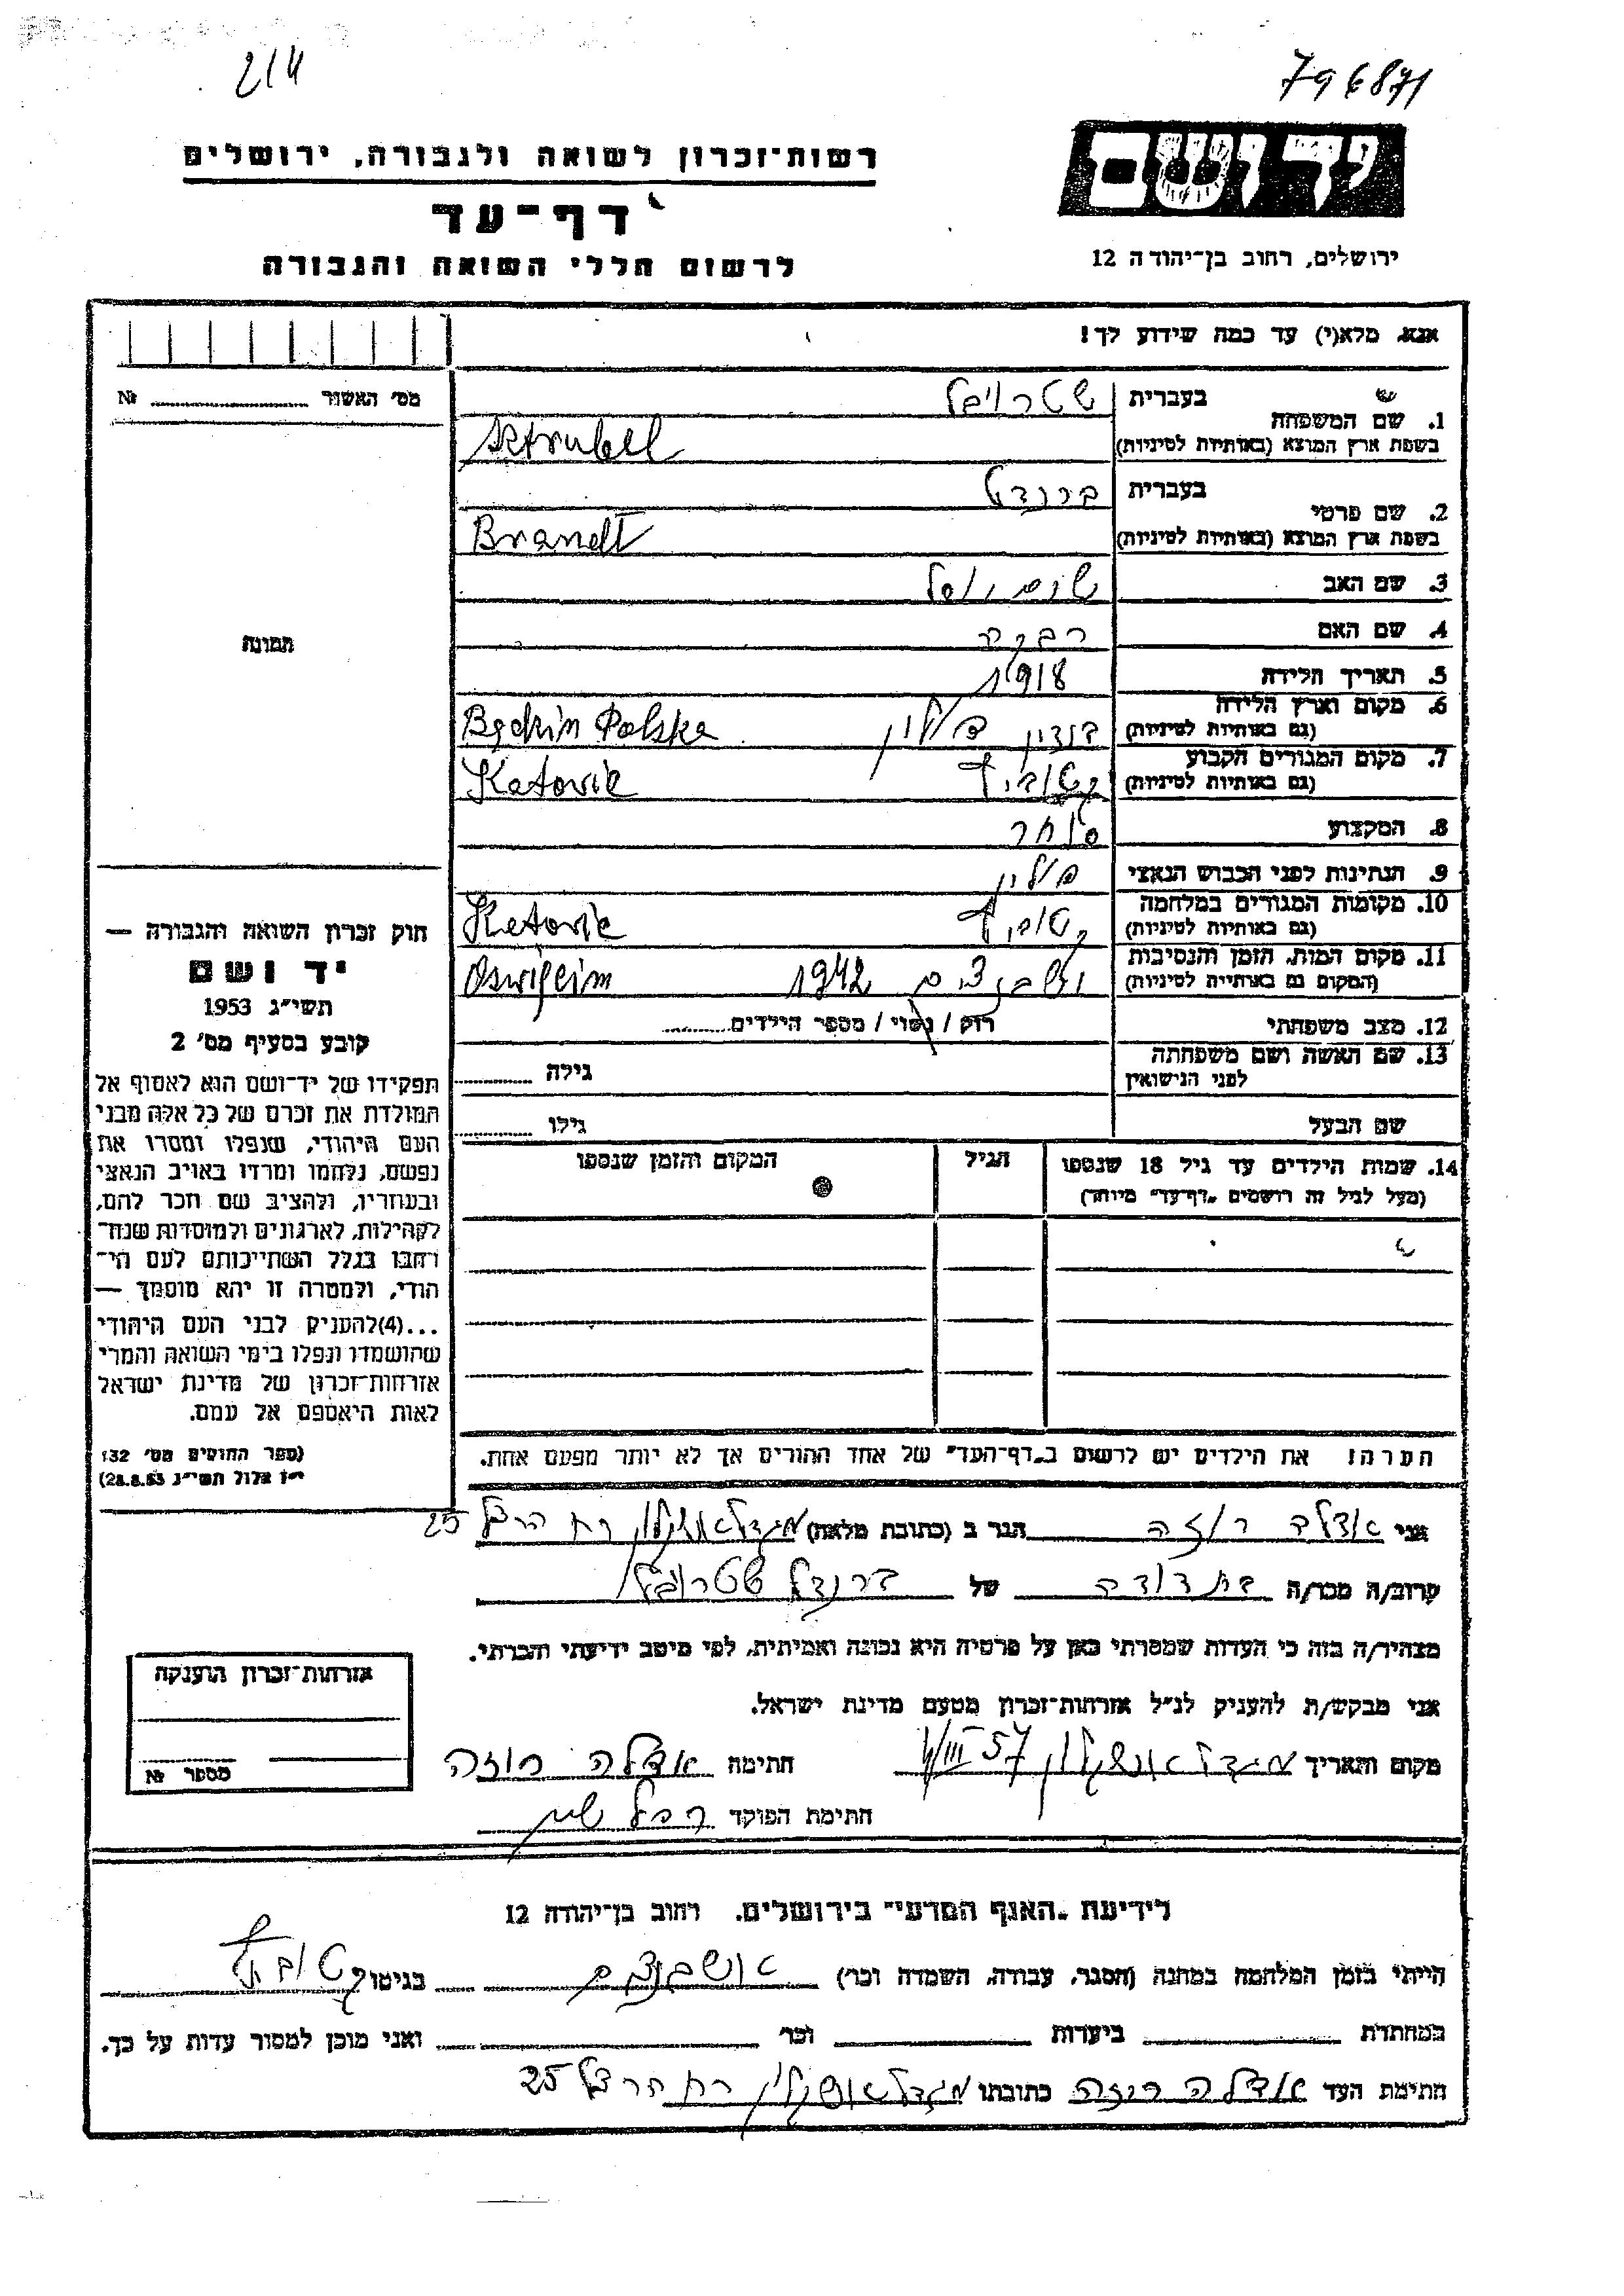 214
796871
יד ושם
ירושלים, רחוב בן־יהודה 12
רשות־זכרון לשואה ולגבורה, ירושלים
דף־עד
לרשום חללי השואה והגבורה
אנא מלא(י) עד כמה שידוע לך!
מס׳ האשור № ..........
תמונה
1. שם המשפחה
בעברית שטרויבל
בשפת ארץ המוצא (באותיות לטיניות) Sztrubell
2. שם פרטי
בעברית ברנדל
בשפת ארץ המוצא (באותיות לטיניות) Brandl
3. שם האב
4. שם האם רבקה
5. תאריך הלידה 1918
6. מקום וארץ הלידה בנדין פולין Będzin Polska
(גם באותיות לטיניות)
7. מקום המגורים הקבוע קטוביץ Katovic
(גם באותיות לטיניות)
8. המקצוע סוחר
9. הנתינות לפני הכבוש הנאצי פולין
10. מקומות המגורים במלחמה קטוביץ Katovic
(גם באותיות לטיניות)
11. מקום המות, הזמן והנסיבות 1942 Oswięcim
(המקום גם באותייה לטיניות)
12. מצב משפחתי רוק / נשוי / מספר הילדים..........
13. שם האשה ושם משפחתה
לפני הנישואין
גילה ..........
שם הבעל גילו ..........
14. שמות הילדים עד גיל 18 שנספו הגיל המקום והזמן שנספו
(מעל לגיל זה רושמים „דף־עד״ מיוחד)
חוק זכרון השואה והגבורה —
יד ושם
תשי״ג 1953
קובע בסעיף מס׳ 2
תפקידו של יד־ושם הוא לאסוף אל
המולדת את זכרם של כל אלה מבני
העם היהודי, שנפלו ומסרו את
נפשם, נלחמו ומרדו באויב הנאצי
ובעוזריו, ולהציב שם וזכר להם,
לקהילות, לארגונים ולמוסדות שנח־
רבו בגלל השתייכותם לעם הי־
הודי, ולמטרה זו יהא מוסמך —
...(4)להעניק לבני העם היהודי
שהושמדו ונפלו בימי השואה והמרי
אזרחות־זכרון של מדינת ישראל
לאות היאספם אל עמם.
(ספר החוקים מס׳ 132
י״ז אלול תשי״ג 28.8.53)
הערה! את הילדים יש לרשום ב„דף־העד״ של אחד ההורים אך לא יותר מפעם אחת.
אני אדלה רוזה הגר ב (כתובת מלאה) מגדל אשקלון רח הרצל 25
קרוב/ה מכר/ה בת דודה של ברנדל שטרובל
מצהיר/ה בזה כי העדות שמסרתי כאן על פרטיה היא נכונה ואמיתית, לפי מיטב ידיעתי והכרתי.
אני מבקש/ת להעניק לנ״ל אזרחות־זכרון מטעם מדינת ישראל.
מקום ותאריך מגדל אשקלון III 57 חתימה אדלה רוזה
חתימת הפוקד
אזרחות־זכרון הוענקה
מספר №
לידיעת „האגף המדעי״ בירושלים. רחוב בן־יהודה 12
הייתי בזמן המלחמה במחנה (הסגר, עבודה, השמדה וכו׳) אושבנצים בגיטו קטוביץ
במחתרת ביערות וכו׳ ואני מוכן למסור עדות על כך.
חתימת העד אדלה רוזה כתובתו מגדל אשקלון רח הרצל 25